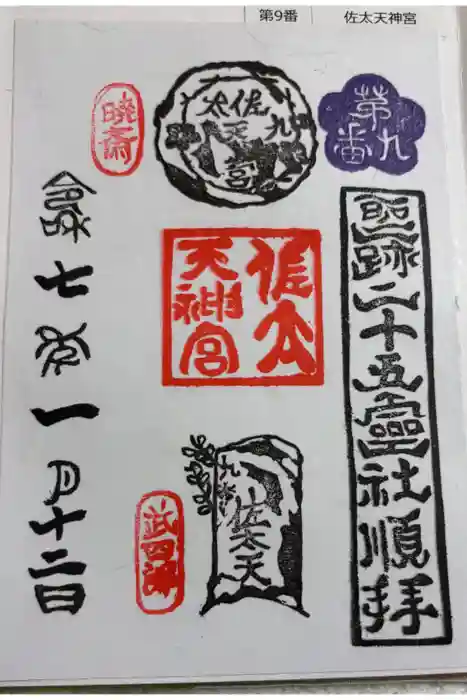 第9番
佐太天神宮
第九番
聖跡二十五霊社順拝
佐太天宮
九
佐太天神宮
九
佐太天
暁斎
武四郎
令和七年一月十二日